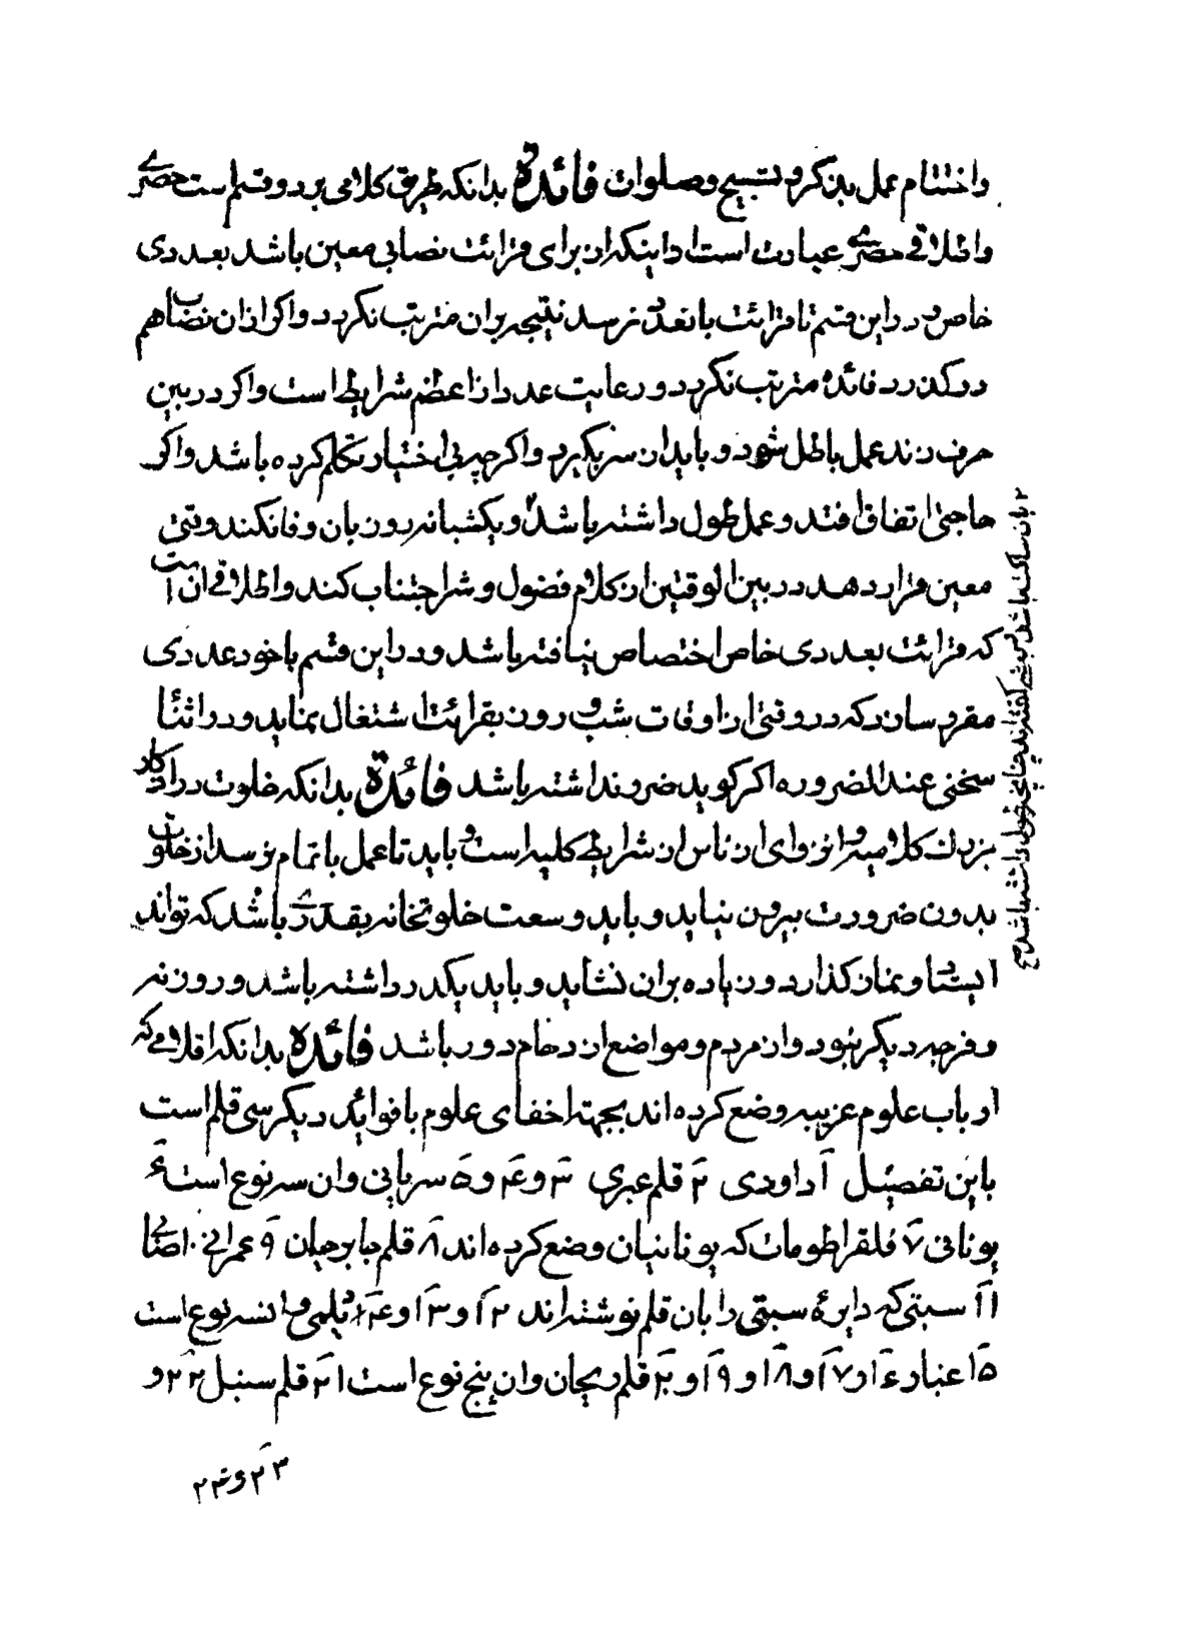 واختتام عمل بذکر و تسبیح و صلوات فائدة بدانکه طریق کلامی بر دو قسم است حصری
و اطلاقی حصری عبارت است از اینکه از برای قرائت نصابی معین باشد بعددی
خاص و در این قسم تا قرائت بانعدد نرسد نتیجه بران مترتب نکردد و اکر ازان نصاب هم
درکذرد فائده مترتب نکردد و رعایت عدد از اعظم شرایط است و اکر در بین
حرف زند عمل باطل شود و باید از سر بکیرد و اکر چه بی اختیار تکلم کرده باشد و اکر
حاجتی اتفاق افتد و عمل طول داشته باشد و یکشبانه روز بان وفا نکند وقتی
معین قرار دهد در بین الوقتین از کلام فضول و شر اجتناب کند و اطلاقی ان است
که قرائت بعددی خاص اختصاص نیافته باشد و در این قسم با خود عددی
مقرر سازد که در وقتی از اوقات شب و روز بقرائت اشتغال نماید و در اثنا
سخنی عند الضروره اکر کوید ضرر نداشته باشد فائدة بدانکه خلوت در اذکار
بزرک کلامیه و انزوای از ناس از شرایط کلیه است و باید تا عمل باتمام نرسد از خلوت
بدون ضرورت بیرون نیاید و باید وسعت خلوتخانه بقدری باشد که تواند
ایستاد و نماز کذارد و زیاده بران نشاید و باید یکدر داشته باشد و روزنه
و فرجه دیکر نبود و از مردم و مواضع ازدحام دور باشد فائدة بدانکه اقلامی که
ارباب علوم غریبه وضع کرده اند بجهت اخفای علوم با فوائد دیکر سی قلم است
باین تفصیل ۱ داودی ۲ قلم عبری ۳ و ۴ و ۵ سریانی وان سه نوع است ۶
یونانی ۷ فلقراطومات که یونانیان وضع کرده اند ۸ قلم جابر حیان ۹ عمرانی ۱۰
۱۱ سبتی که دایرهٔ سبتی را بان قلم نوشته اند ۱۲ و ۱۳ و ۱۴ وان سه نوع است
۱۵ غبار ۱۶ و ۱۷ و ۱۸ و ۱۹ و ۲۰ قلم ریحان وان پنج نوع است ۲۱ قلم سنبل ۲۲ و
۲۳ و ۲۴